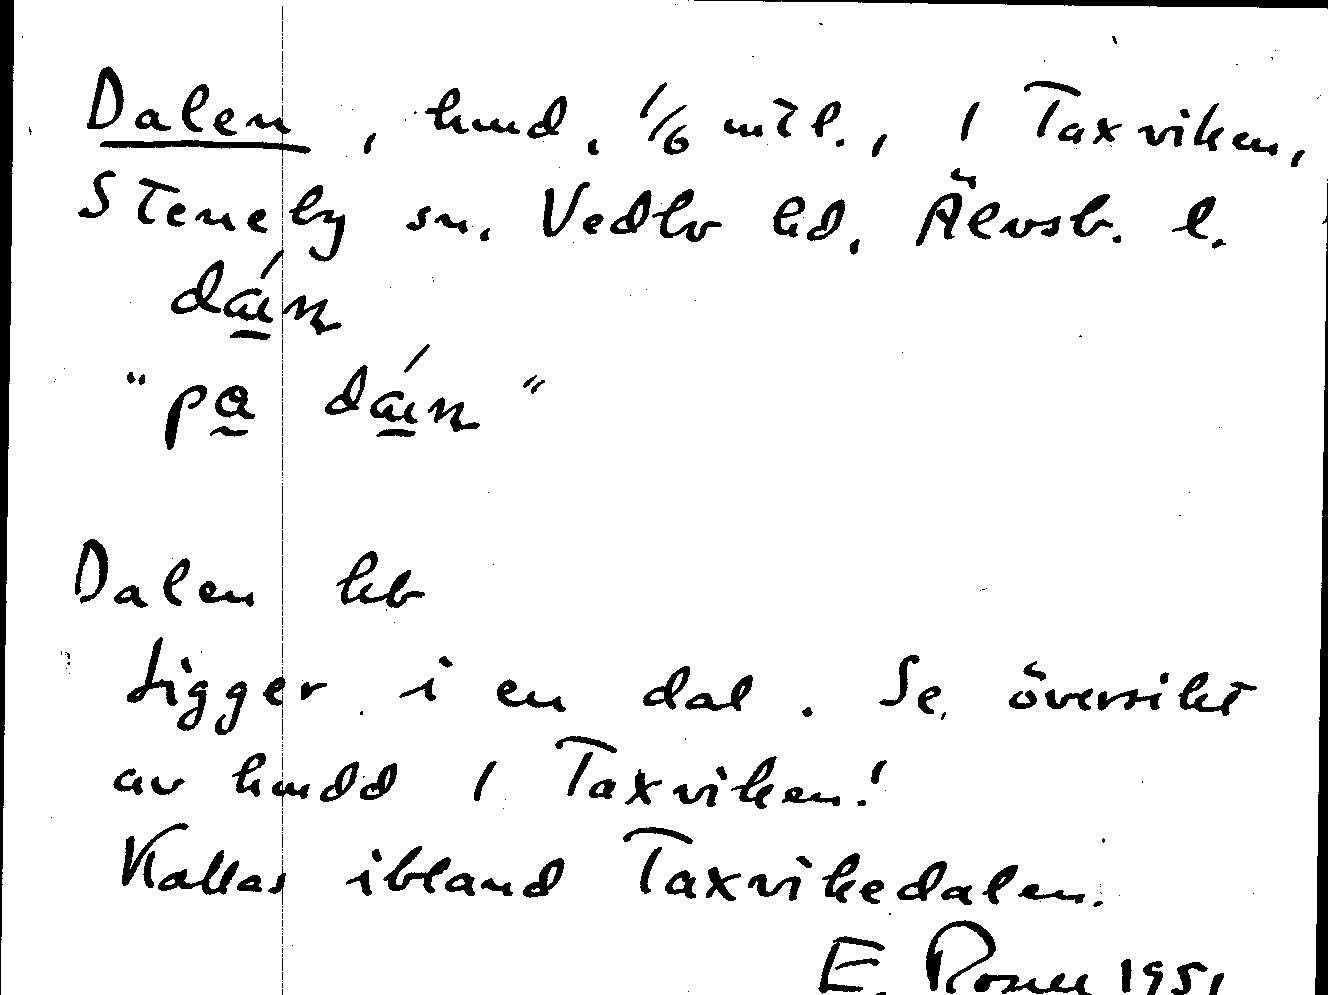 Dalen, hmd. 1/6 mtl., / Taxviken,
Steneby sn. Vedbo hd. Älvsb. l.
dán
"pa dán"
Dalen kb
Ligger i en dal. Se översikt
av hmdd / Taxviken!
Kallas ibland Taxvikedalen.
E. Rosell 1951